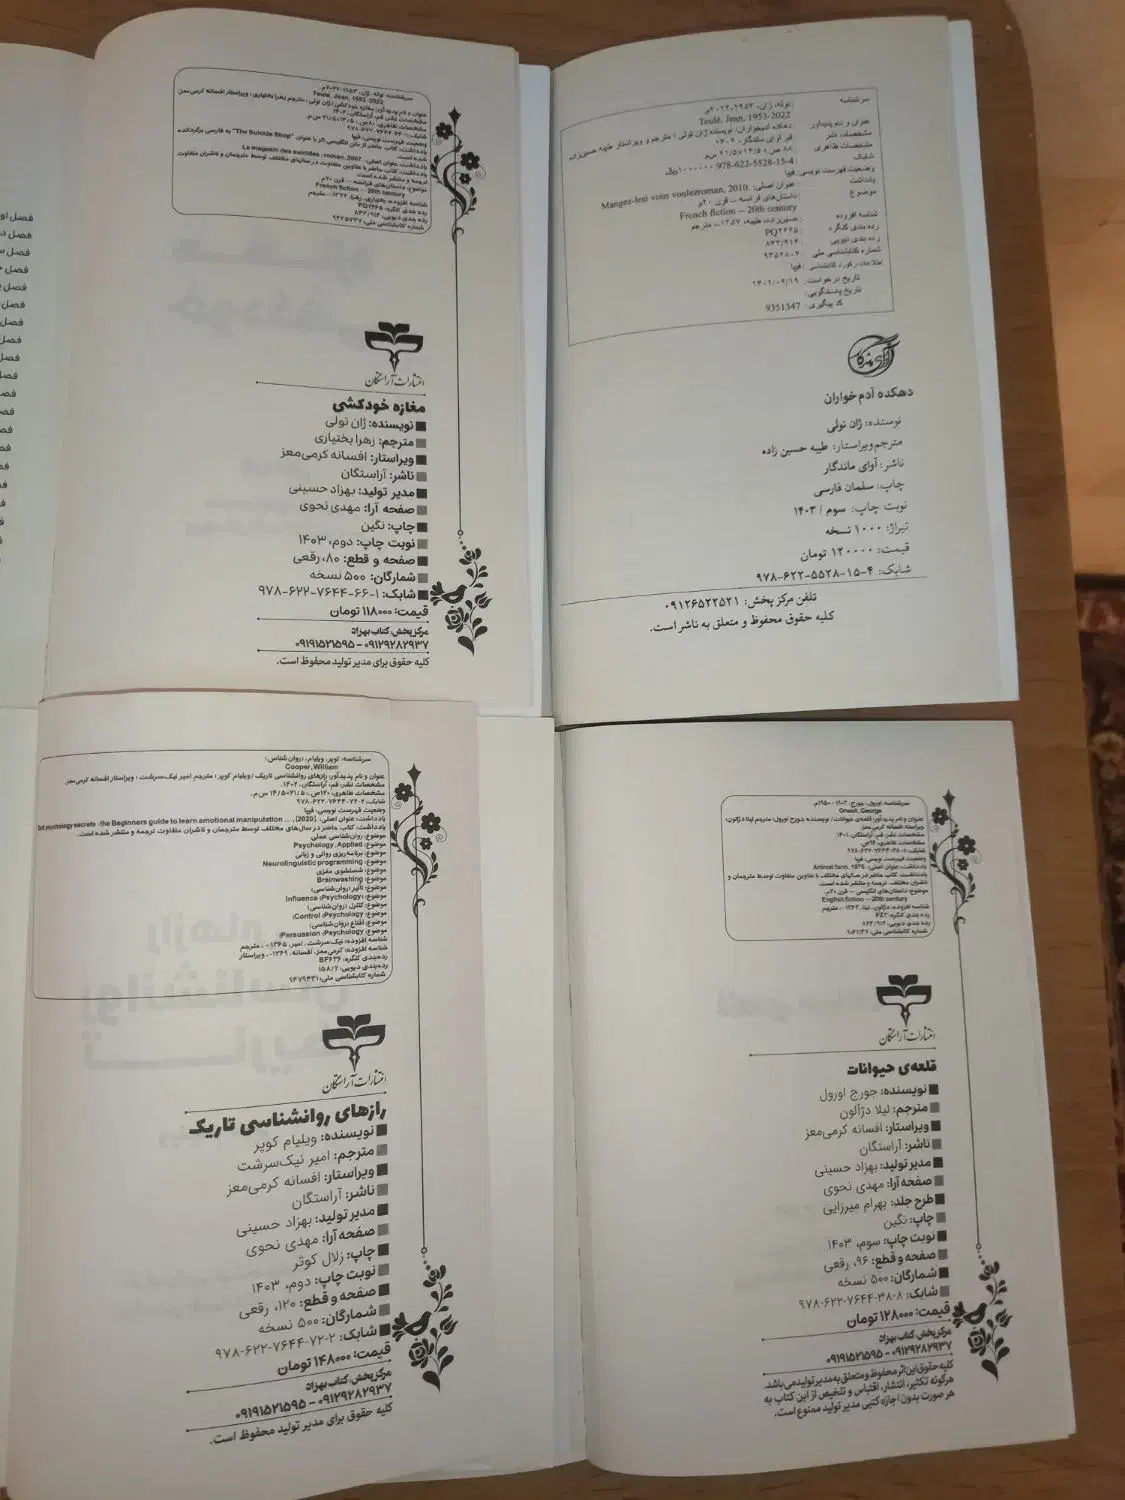 سرشناسه: تولە، ژان، ۱۹۵۳-۲۰۲۲م
Teule, Jean, 1953-2022
عنوان و نام پدیدآور: مغازه خودکشی/ ژان تولی؛ مترجم زهرا بختیاری؛ ویراستار افسانه کرمی‌معز.
مشخصات نشر: قم، آراستگان، ۱۴۰۲.
مشخصات ظاهری: ۸۰ص.؛ ۲۱/۵×۱۴/۵ س.م.
شابک: ۱-۶۶-۷۶۴۴-۶۲۲-۹۷۸
وضعیت فهرست نویسی: فیپا
یادداشت: کتاب حاضر از متن انگلیسی اثر با عنوان "The Suicide Shop" به فارسی برگردانده
شده است.
یادداشت: عنوان اصلی: Le magasin des suicides : roman, 2007.
یادداشت: کتاب حاضر با عناوین متفاوت در سالهای مختلف توسط مترجمان و ناشران متفاوت
ترجمه و منتشر شده است.
موضوع: داستان‌های فرانسه -- قرن ۲۰م
French fiction -- 20th century
شناسه افزوده: بختیاری، زهرا، ۱۳۷۲-، مترجم
رده بندی کنگره: PQ۲۶۶۵
رده بندی دیویی: ۸۴۳/۹۱۴
شماره کتابشناسی ملی: ۹۴۲۵۷۳۷
انتشارات آراستگان
مغازه خودکشی
نویسنده: ژان تولی
مترجم: زهرا بختیاری
ویراستار: افسانه کرمی‌معز
ناشر: آراستگان
مدیر تولید: بهزاد حسینی
صفحه آرا: مهدی نحوی
چاپ: نگین
نوبت چاپ: دوم، ۱۴۰۳
صفحه و قطع: ۸۰، رقعی
شمارگان: ۵۰۰ نسخه
شابک: ۱-۶۶-۷۶۴۴-۶۲۲-۹۷۸
قیمت: ۱۱۸۰۰۰ تومان
مرکز پخش: کتاب بهزاد
۰۹۱۲۹۲۸۲۹۳۷ - ۰۹۱۹۱۵۲۱۵۹۵
کلیه حقوق برای مدیر تولید محفوظ است.
سرشناسه : توله، ژان، ۱۹۵۳-۲۰۲۲م
Teulé, Jean, 1953-2022
عنوان و نام پدیدآور : دهکده آدمخواران/ نویسنده ژان تولی ؛ مترجم و ویراستار طیبه حسین‌زاده.
مشخصات نشر : قم: آوای ماندگار، ۱۴۰۲
مشخصات ظاهری : ۸۸ ص.؛ ۱۴/۵×۲۱/۵ س‌م.
شابک : 978-622-5528-15-4 ۱۰۰۰۰۰۰ریال
وضعیت فهرست نویسی : فیپا
یادداشت : عنوان اصلی: Mangez-lesi vous voulezroman, 2010.
موضوع : داستان‌های فرانسه -- قرن ۲۰م
French fiction -- 20th century
شناسه افزوده : حسین‌زاده، طیبه، ۱۳۵۷-، مترجم
رده بندی کنگره : PQ۲۶۶۵
رده بندی دیویی : ۸۴۳/۹۱۴
شماره کتابشناسی ملی : ۹۳۵۲۸۰۴
اطلاعات رکورد کتابشناسی : فیپا
تاریخ درخواست : ۱۴۰۲/۰۶/۱۹
تاریخ پاسخگویی:
کد پیگیری : 9351347
آوای ماندگار
دهکده آدم خواران
نویسنده: ژان تولی
مترجم‌ویراستار: طیبه حسین زاده
ناشر: آوای ماندگار
چاپ: سلمان فارسی
نوبت چاپ: سوم / ۱۴۰۳
تیراژ: ۱۰۰۰ نسخه
قیمت: ۱۲۰۰۰۰ تومان
شابک: ۴-۱۵-۵۵۲۸-۶۲۲-۹۷۸
تلفن مرکز پخش: ۰۹۱۲۶۵۲۲۵۲۱
کلیه حقوق محفوظ و متعلق به ناشر است.
سرشناسه: کوپر، ویلیام، (روان‌شناس)
Cooper, William
عنوان و نام پدیدآور: رازهای روانشناسی تاریک /ویلیام کوپر ؛ مترجم امیر نیک‌سرشت ؛ ویراستار افسانه کرمی‌معز.
مشخصات نشر: قم، آراستگان، ۱۴۰۲.
مشخصات ظاهری: ۱۲۰ص.؛ ۱۴/۵×۲۱/۵ س.م.
شابک: ۲-۷۲-۷۶۴۴-۶۲۲-۹۷۸
وضعیت فهرست نویسی: فیپا
یادداشت: عنوان اصلی: psychology secrets : the Beginners guide to learn emotional manipulation ... , [2020].
یادداشت: کتاب حاضر در سال‌های مختلف توسط مترجمان و ناشران متفاوت ترجمه و منتشر شده است.
موضوع: روان‌شناسی عملی
موضوع: Psychology, Applied
موضوع: برنامه‌ریزی روانی و زبانی
موضوع: Neurolinguistic programming
موضوع: شستشوی مغزی
موضوع: Brainwashing
موضوع: تأثیر (روان‌شناسی)
موضوع: Influence (Psychology)
موضوع: کنترل (روان‌شناسی)
موضوع: Control (Psychology)
موضوع: اقناع (روان‌شناسی)
موضوع: Persuasion (Psychology)
شناسه افزوده: نیک‌سرشت، امیر، ۱۳۶۵-، مترجم
شناسه افزوده: کرمی‌معز، افسانه، ۱۳۶۹-، ویراستار
رده‌بندی کنگره: BF۶۳۶
رده‌بندی دیویی: ۱۵۸/۲
شماره کتابشناسی ملی: ۹۴۷۹۴۳۱
انتشارات آراستگان
رازهای روانشناسی تاریک
نویسنده: ویلیام کوپر
مترجم: امیر نیک‌سرشت
ویراستار: افسانه کرمی‌معز
ناشر: آراستگان
مدیر تولید: بهزاد حسینی
صفحه آرا: مهدی نحوی
چاپ: زلال کوثر
نوبت چاپ: دوم، ۱۴۰۳
صفحه و قطع: ۱۲۰، رقعی
شمارگان: ۵۰۰ نسخه
شابک: ۲-۷۲-۷۶۴۴-۶۲۲-۹۷۸
قیمت: ۱۴۸۰۰۰ تومان
مرکز پخش: کتاب بهزاد
۰۹۱۲۹۲۸۲۹۳۷ - ۰۹۱۹۱۵۲۱۵۹۵
کلیه حقوق برای مدیر تولید محفوظ است.
سرشناسه: اورول، جورج، ۱۹۰۳-۱۹۵۰م.
Orwell, George
عنوان و نام پدیدآور: قلعه‌ی حیوانات / نویسنده جورج اورول؛ مترجم لیلا دژآلون؛
ویراسته افسانه کرمی معز.
مشخصات نشر: قم، آراستگان، ۱۴۰۱.
مشخصات ظاهری: ۹۶ص.
شابک: ۸-۳۸-۷۶۴۴-۶۲۲-۹۷۸
وضعیت فهرست نویسی: فیپا
یادداشت: عنوان اصلی: Animal farm, 1976.
یادداشت: کتاب حاضر در سالهای مختلف با عناوین متفاوت توسط مترجمان و
ناشران مختلف، ترجمه و منتشر شده است.
موضوع: داستان‌های انگلیسی -- قرن ۲۰م.
English fiction -- 20th century
شناسه افزوده: دژآلون، لیلا، ۱۳۶۲-، مترجم
رده بندی کنگره: PZ۳
رده بندی دیویی: ۸۲۳/۹۱۲
شماره کتابشناسی ملی: ۹۰۶۱۱۳۷
انتشارات آراستگان
قلعه‌ی حیوانات
نویسنده: جورج اورول
مترجم: لیلا دژآلون
ویراستار: افسانه کرمی‌معز
ناشر: آراستگان
مدیر تولید: بهزاد حسینی
صفحه آرا: مهدی نحوی
طرح جلد: بهرام میرزایی
چاپ: نگین
نوبت چاپ: سوم، ۱۴۰۳
صفحه و قطع: ۹۶، رقعی
شمارگان: ۵۰۰ نسخه
شابک: ۸-۳۸-۷۶۴۴-۶۲۲-۹۷۸
قیمت: ۱۲۸۰۰۰ تومان
مرکز پخش: کتاب بهزاد
۰۹۱۲۹۲۸۲۹۳۷ - ۰۹۱۹۱۵۲۱۵۹۵
کلیه حقوق این اثر محفوظ و متعلق به مدیر تولید می باشد.
هرگونه تکثیر، انتشار، اقتباس و تلخیص از این کتاب به
هر صورت بدون اجازه کتبی مدیر تولید ممنوع است.